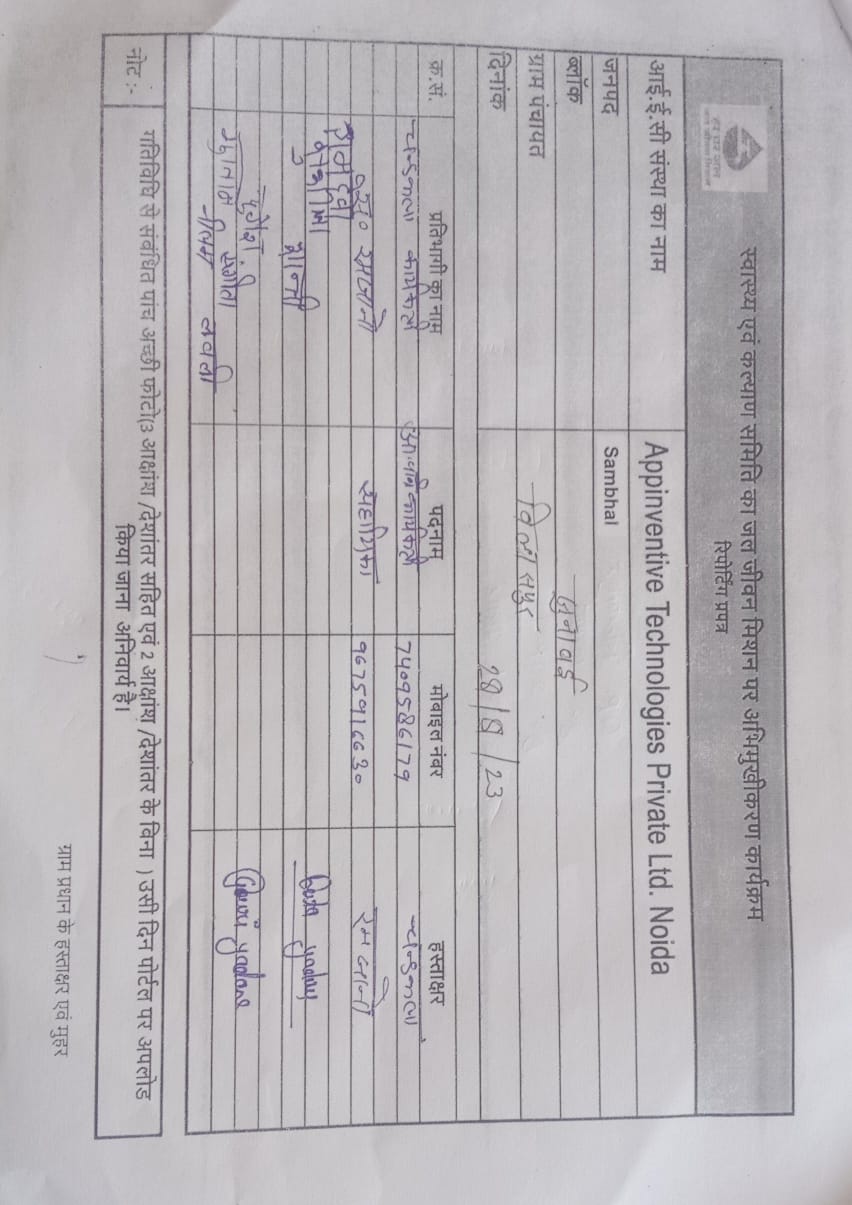 स्वास्थ्य एवं कल्याण समिति का जल जीवन मिशन पर अभिमुखीकरण कार्यक्रम
रिपोर्टिंग प्रपत्र
आई.ई.सी संस्था का नाम Appinventive Technologies Private Ltd. Noida
जनपद Sambhal
ब्लॉक जुनावई
ग्राम पंचायत
दिनांक 28/8/23
क्र.सं. प्रतिभागी का नाम पदनाम मोबाइल नंबर हस्ताक्षर
चन्द्रकला कार्यकर्त्री कार्यकर्त्री 7409586179 चन्द्रकला
सहायिका 9675916630
yadav
शान्ती
संगीता yadav
नोट :- गतिविधि से संबंधित पांच अच्छी फोटो(3 आक्षांश /देशांतर सहित एवं 2 आक्षांश /देशांतर के बिना ) उसी दिन पोर्टल पर अपलोड
किया जाना अनिवार्य है।
ग्राम प्रधान के हस्ताक्षर एवं मुहर